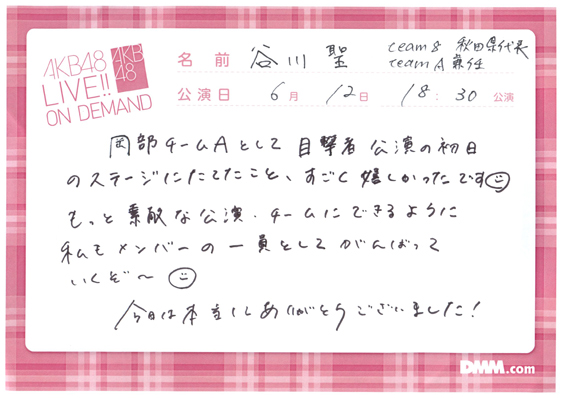 AKB48
LIVE!!
ON DEMAND
AKB
48
名前 谷川 聖 team 8 秋田県代表
team A 兼任
公演日 6月 12日 18:30 公演
岡部チームAとして 目撃者 公演の初日
のステージにたてたこと、すごく嬉しかったです
もっと素敵な公演・チームにできるように
私もメンバーの一員としてがんばって
いくぞ〜
今日は本当にありがとうございました!
DMM.com